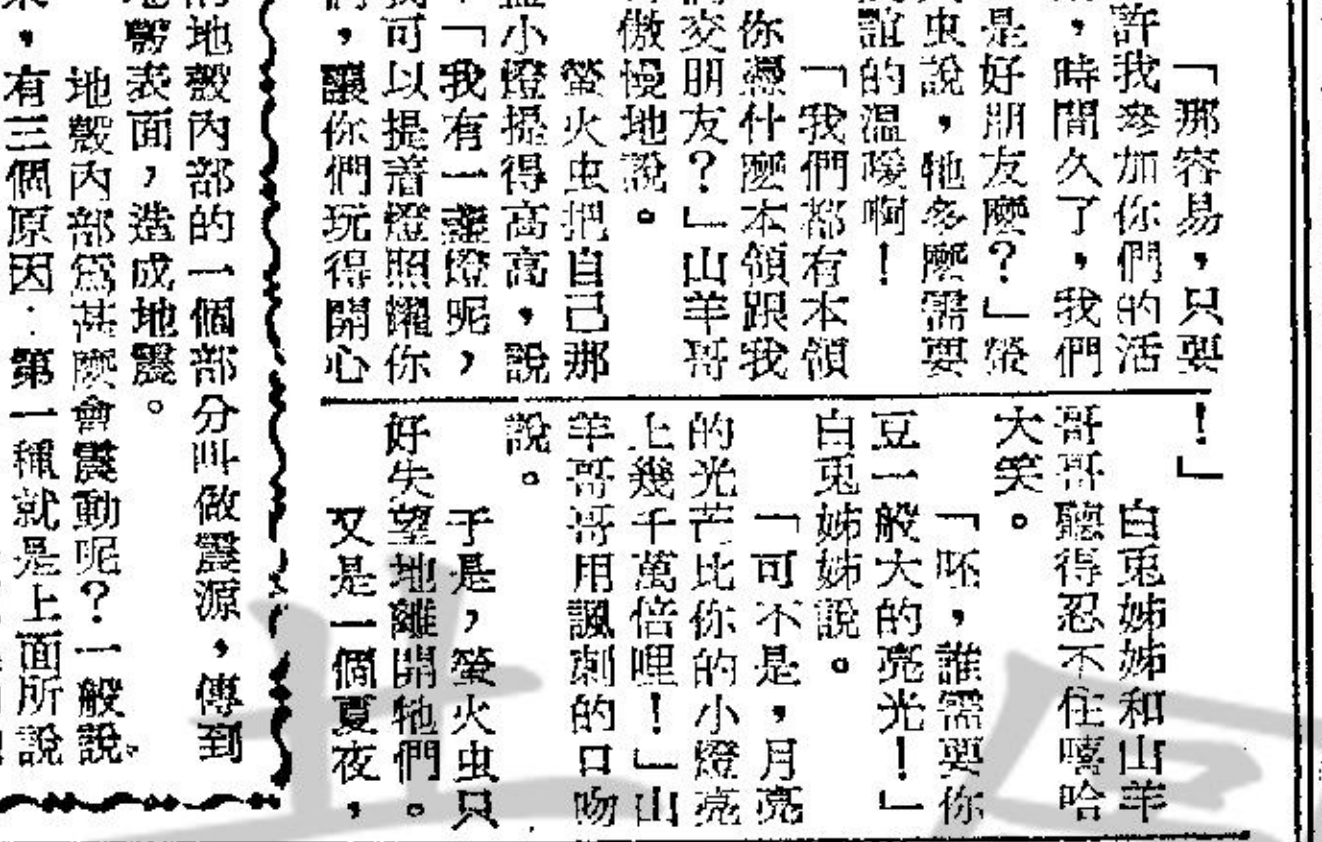 「那容易，只要
許我參加你們的活
，時間久了，我們
是好朋友麼？」螢
虫說，牠多麼需要
誼的溫暖啊！
「我們都有本領
你憑什麼本領跟我
們交朋友？」山羊哥
傲慢地說。
螢火虫把自己那
盞小燈提得高高，說
「我有一盞燈呢，
我可以提着燈照耀你
們，讓你們玩得開心
！」
白兎姊姊和山羊
哥哥聽得忍不住嘻哈
大笑。
「呸，誰需要你
豆一般大的亮光！」
白兎姊姊說。
「可不是，月亮
的光芒比你的小燈亮
上幾千萬倍哩！」山
羊哥哥用諷刺的口吻
說。
于是，螢火虫只
好失望地離開牠們。
又是一個夏夜，
的地殼內部的一個部分叫做震源，傳到
地殼表面，造成地震。
地殼內部爲甚麼會震動呢？一般說
來，有三個原因：第一種就是上面所說